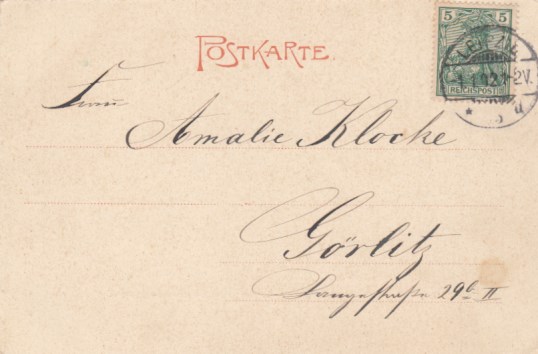 POSTKARTE.
5 5
REICHSPOST
LEIPZIG
1-2V.
Frau
Amalie Klocke
Görlitz
Langestraße 29b II